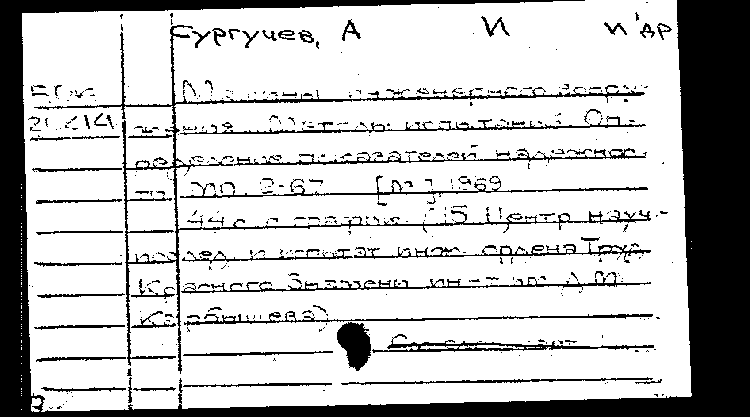 Сургучев, А И и др
Машины инженерного воору-
21414 жения. Методы испытаний. Оп-
ределение показателей надежнос-
ти. МО. 2-67 [М], 1969
44 с. с график. (15 Центр науч-
исслед. и испытат инж ордена Труд
Красного Знамени ин-т им Д М
Карбышева)